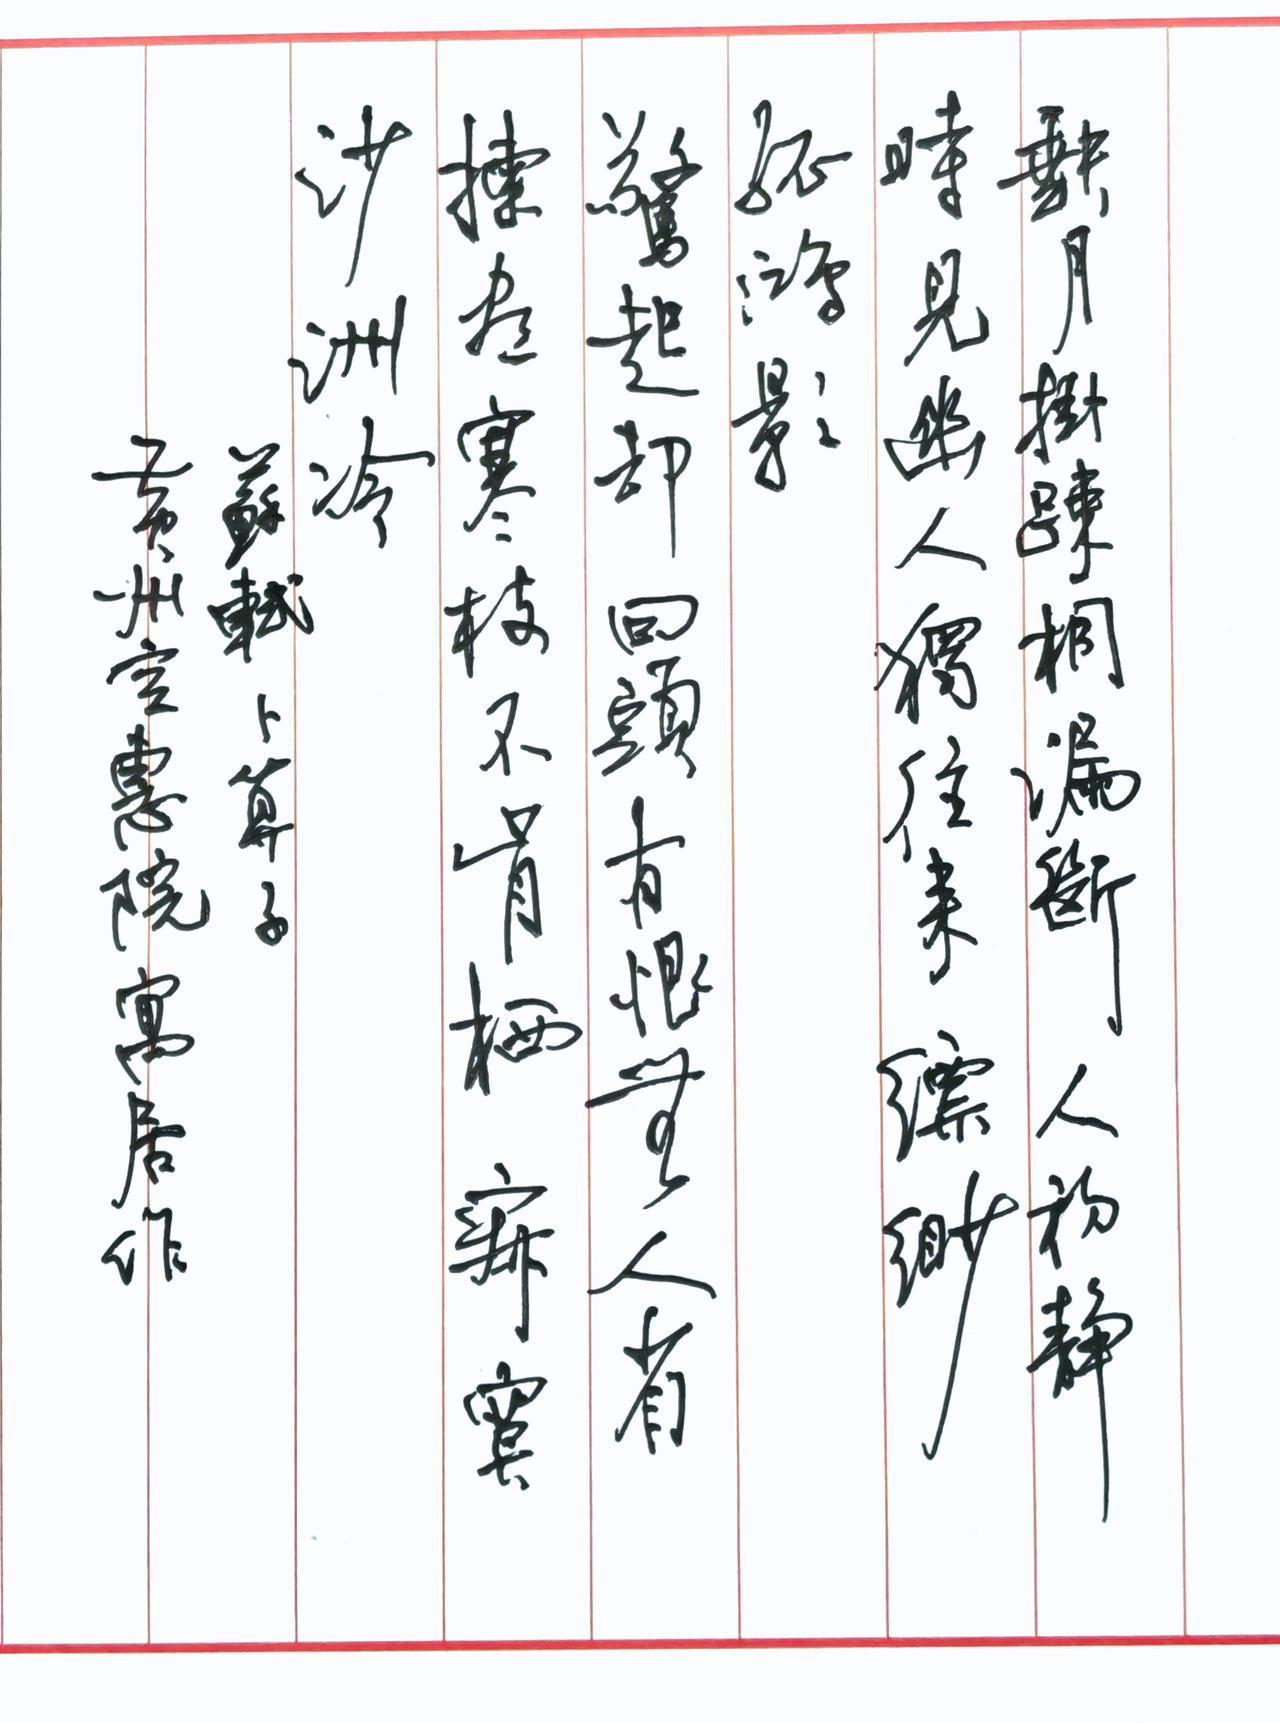 缺月掛踈桐漏斷 人初静
時見幽人獨往来 縹緲
孤鴻影
驚起却回頭有恨無人省
揀盡寒枝不肯栖 寂寞
沙洲冷
蘇軾 卜算子
黄州定惠院寓居作